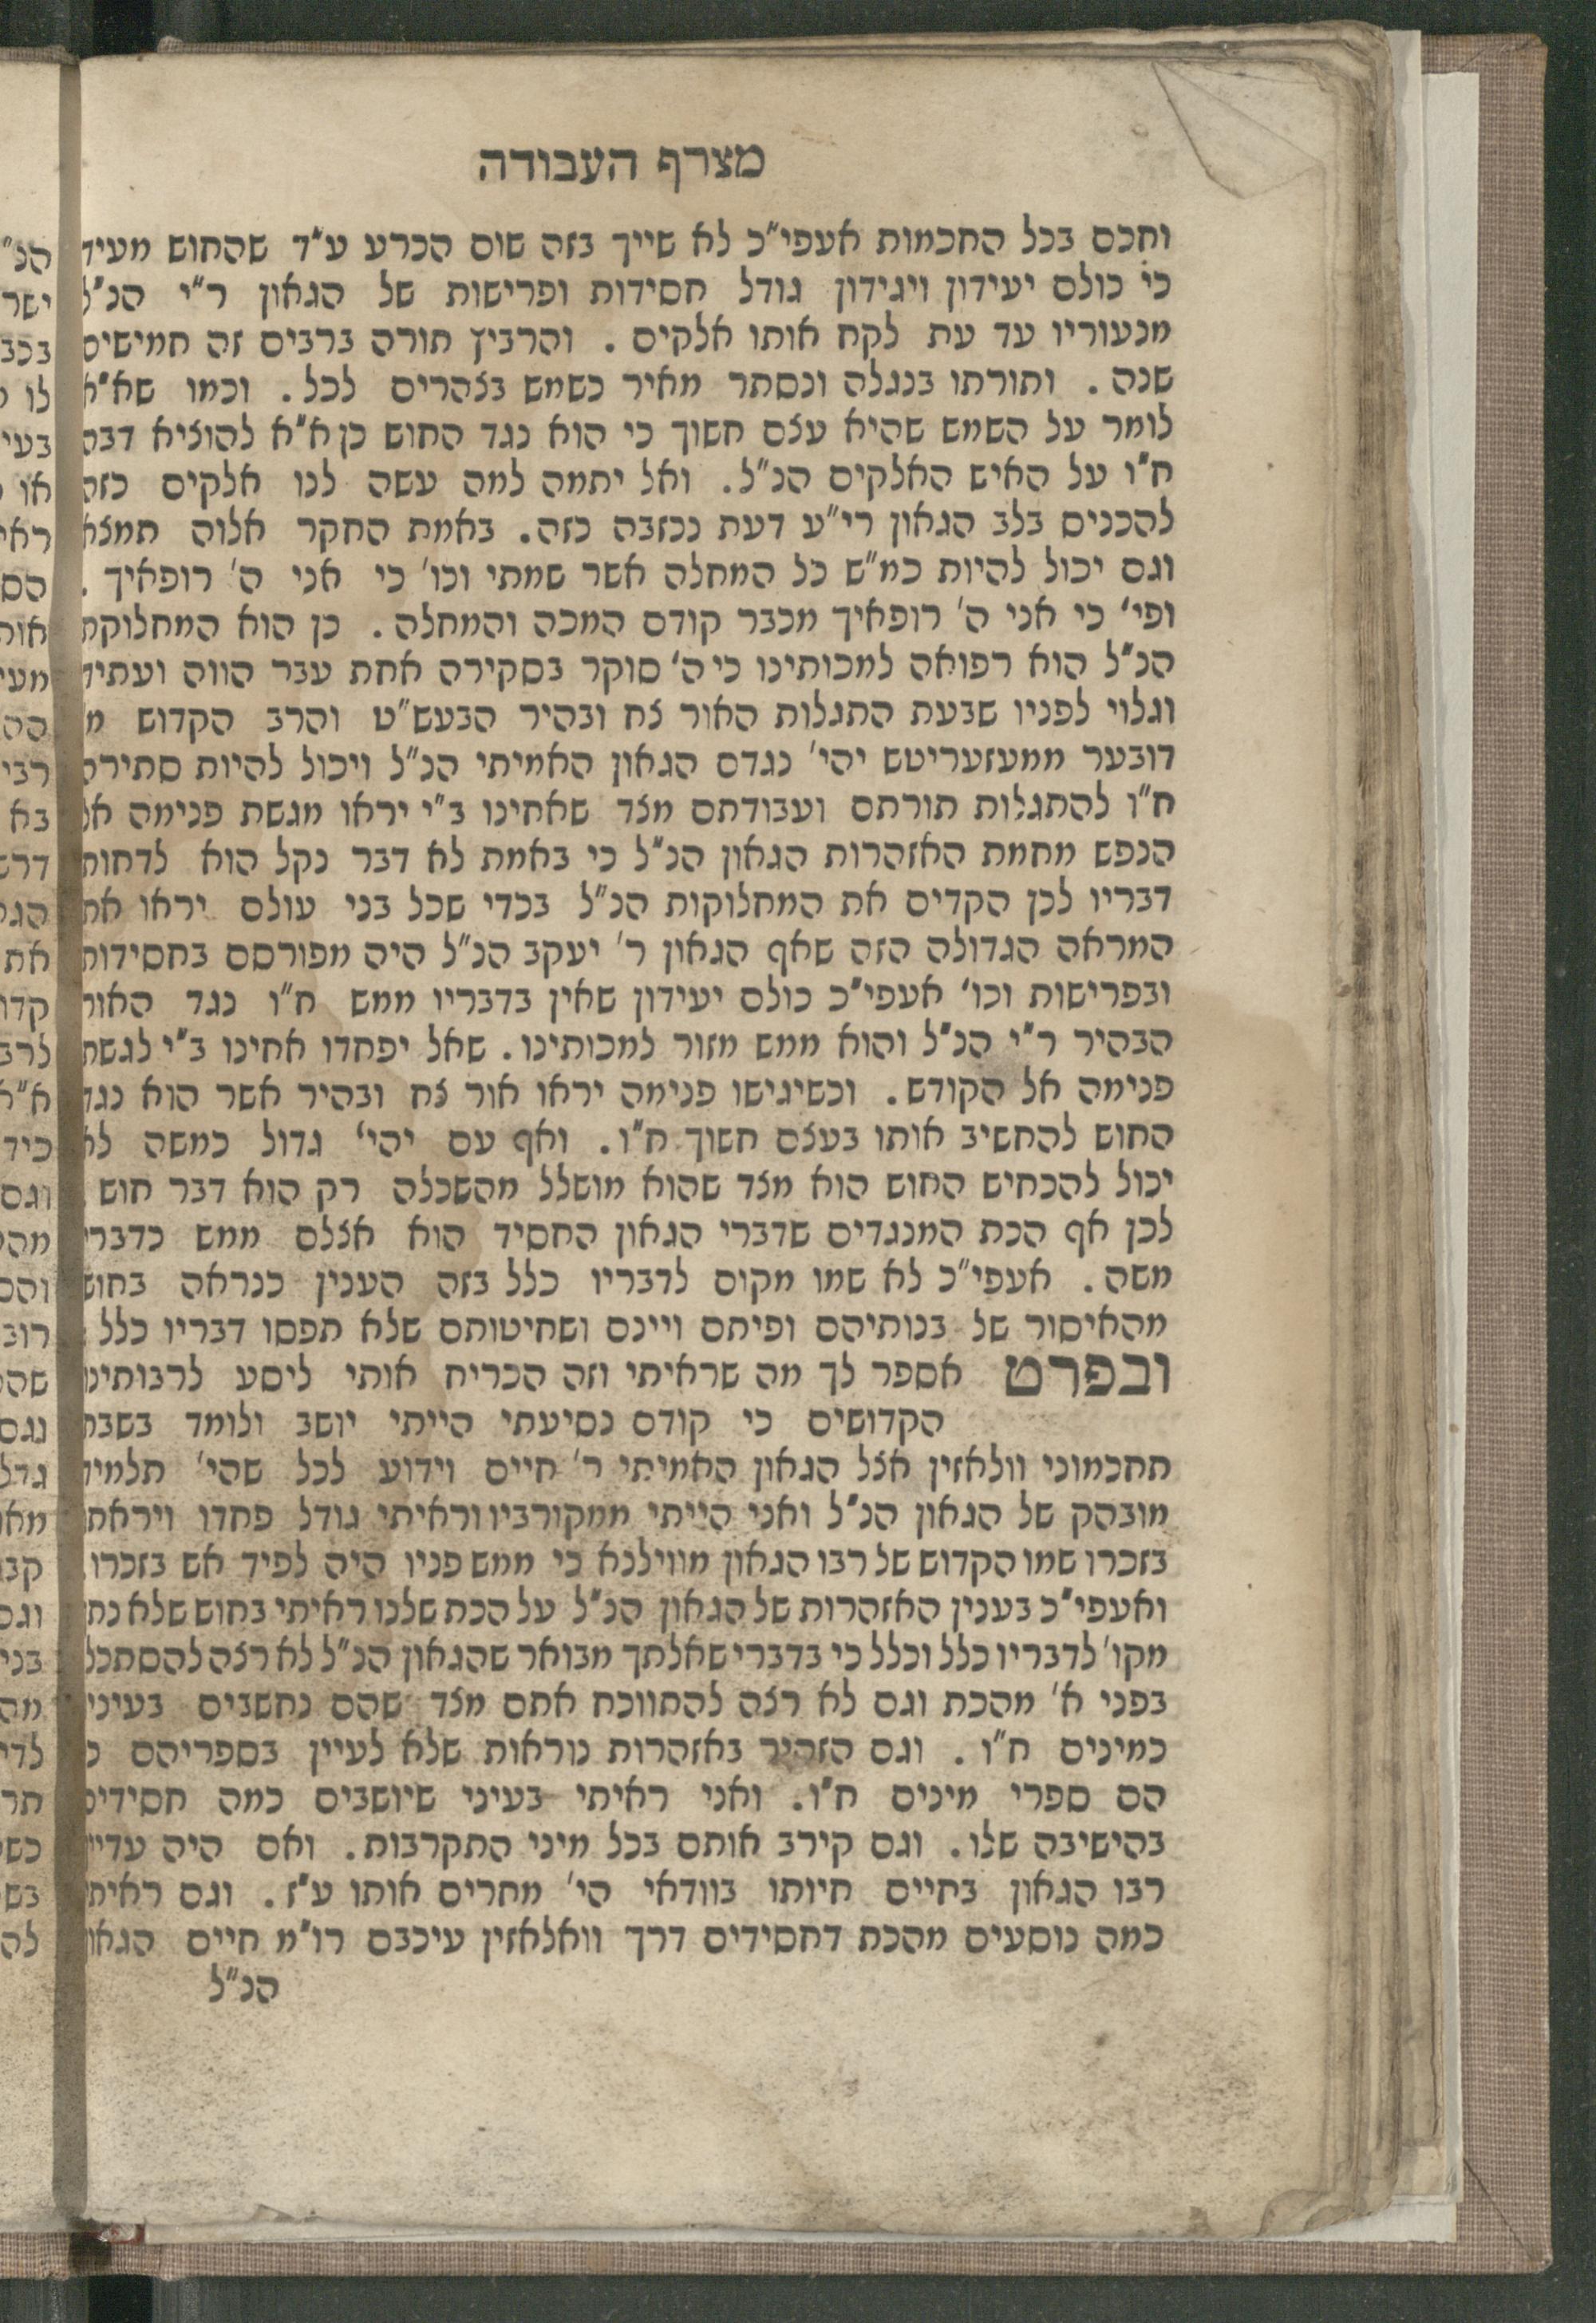 מצרף העבודה
וחכם בכל החכמות אעפי"כ לא שייך בזה שום הכרע ע"ד שהחוש מעיד
כי כולם יעידון ויגידון גודל חסידות ופרישות של הגאון ר"י הנ"ל
מנעוריו עד עת לקח אותו אלקים . והרביץ תורה ברבים זה חמישים
שנה . ותורתו בנגלה ונסתר מאיר כשמש בצהרים לכל . וכמו שא"א
לומר על השמש שהיא עצם חשוך כי הוא נגד החוש כן א"א להוציא דבה
ח"ו על האיש האלקים הנ"ל . ואל יתמה למה עשה לנו אלקים כזה
להכנים בלב הגאון רי"ע דעת נכזבה כזה . באמת החקר אלוה תמצא
וגם יכול להיות כמ"ש כל המחלה אשר שמתי וכו' כי אני ה' רופאיך .
ופי' כי אני ה' רופאיך מכבר קודם המכה והמחלה . כן הוא המחלוקת
הנ"ל הוא רפואה למכותינו כי ה' סוקר בסקירה אחת עבר הווה ועתיד
וגלוי לפניו שבעת התגלות האור צח ובהיר הבעש"ט והרב הקדוש מ'
דובער ממעזעריטש יהי' נגדם הגאון האמיתי הנ"ל ויכול להיות סתירה
ח"ו להתגלות תורתם ועבודתם מצד שאחינו ב"י יראו מגשת פנימה אל
הנפש מחמת האזהרות הגאון הנ"ל כי באמת לא דבר נקל הוא לדחות
דבריו לכן הקדים את המחלוקות הנ"ל בכדי שכל בני עולם יראו את
המראה הגדולה הזה שאף הגאון ר' יעקב הנ"ל היה מפורסם בחסידות
ובפרישות וכו' אעפי"כ כולם יעידון שאין בדבריו ממש ח"ו נגד האור
הבהיר ר"י הנ"ל והוא ממש מזור למכותינו . שאל יפחדו אחינו ב"י לגשת
פנימה אל הקודש . וכשיגישו פנימה יראו אור צח ובהיר אשר הוא נגד
החוש להחשיב אותו בעצם חשוך ח"ו . ואף עם יהי' גדול כמשה לא
יכול להכחיש החוש הוא מצד שהוא מושלל מהשכלה רק הוא דבר חוש .
לכן אף הכת המנגדים שדברי הגאון החסיד הוא אצלם ממש כדברי
משה . אעפי"כ לא שמו מקום לדבריו כלל בזה הענין כנראה בחוש
מהאיסור של בנותיהם ופיתם ויינם ושחיטותם שלא תפסו דבריו כלל :
ובפרט אספר לך מה שראיתי וזה הכריח אותי ליסע לרבותינו
הקדושים כי קודם נסיעתי הייתי יושב ולומד בשבת
תחכמוני וולאזין אצל הגאון האמיתי ר' חיים וידוע לכל שהי' תלמיד
מובהק של הגאון הנ"ל ואני הייתי ממקורביו וראיתי גודל פחדו ויראתו
בזכרו שמו הקדוש של רבו הגאון מווילנא כי ממש פניו היה לפיד אש בזכרו .
ואעפי"כ בענין האזהרות של הגאון הנ"ל על הכת שלנו ראיתי בחוש שלא נתן
מקו' לדבריו כלל וכלל כי בדברי שאלתך מבואר שהגאון הנ"ל לא רצה להסתכל
בפני א' מהכת וגם לא רצה להתווכח אתם מצד שהם נחשבים בעיניו
כמינים ח"ו . וגם הזהיר באזהרות נוראות שלא לעיין בספריהם כי
הם ספרי מינים ח"ו . ואני ראיתי בעיני שיושבים כמה חסידים
בהישיבה שלו . וגם קירב אותם בכל מיני התקרבות . ואם היה עדיין
רבו הגאון בחיים חיותו בוודאי הי' מחרים אותו ע"ז . וגם ראיתי
כמה נוסעים מהכת דחסידים דרך וואלאזין עיכבם רו"מ חיים הגאון
הנ"ל